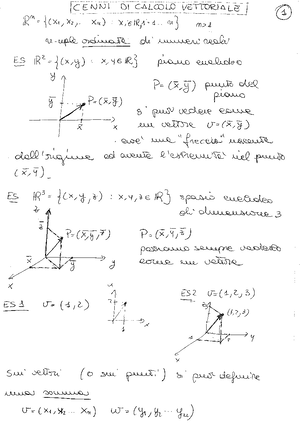 CENNI DI CALCOLO VETTORIALE
1
ℝⁿ = {(x₁, x₂, ... xₙ) : xᵢ ∈ ℝ, i = 1 ... n} n≥1
n-uple ordinate di numeri reali
ES ℝ² = {(x,y) : x,y ∈ ℝ} piano euclideo
P = (x̄, ȳ) punto del
piano
ȳ P = (x̄, ȳ)
si può vedere come
un vettore v = (x̄, ȳ)
x̄ x
cioè una "freccia" uscente
dall'origine ed avente l'estremità nel punto
(x̄, ȳ)
ES ℝ³ = {(x,y,z) : x,y,z ∈ ℝ} spazio euclideo
di dimensione 3
z
P = (x̄, ȳ, z̄) P = (x̄, ȳ, z̄)
possiamo sempre vederlo
come un vettore
x̄ ȳ y
x
ES 1 v = (1,2) ES 2 v = (1,2,3)
(1,2,3)
Sui vettori (o sui punti) si può definire
una somma
v = (x₁, x₂ ... xₙ) w = (y₁, y₂ ... yₙ)